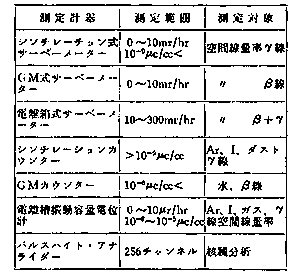 測定計器 測定範囲 測定対象
シンチレーチョン式
サーベーメーター
0～10mr/hr
10⁻⁶μc/cc<
空間線量率γ線
GM式サーベーメー
ター
0～10mr/hr
〃 β線
電離箱式サーベーメ
ーター
10～300mr/hr
〃 β+γ
シンチレーションカ
ウンター
>10⁻⁶μc/cc
Ar、I、ダスト
γ線
GMカウンター
10⁻⁶μc/cc<
水、β線
電離槽振動容量電位
計
0～10μr/hr
10⁻⁶～10⁻⁵μc/cc
Ar、I、ガス、γ
線空間線量率
パルスハイト・アナ
ライダー
256チャンネル
核種分析